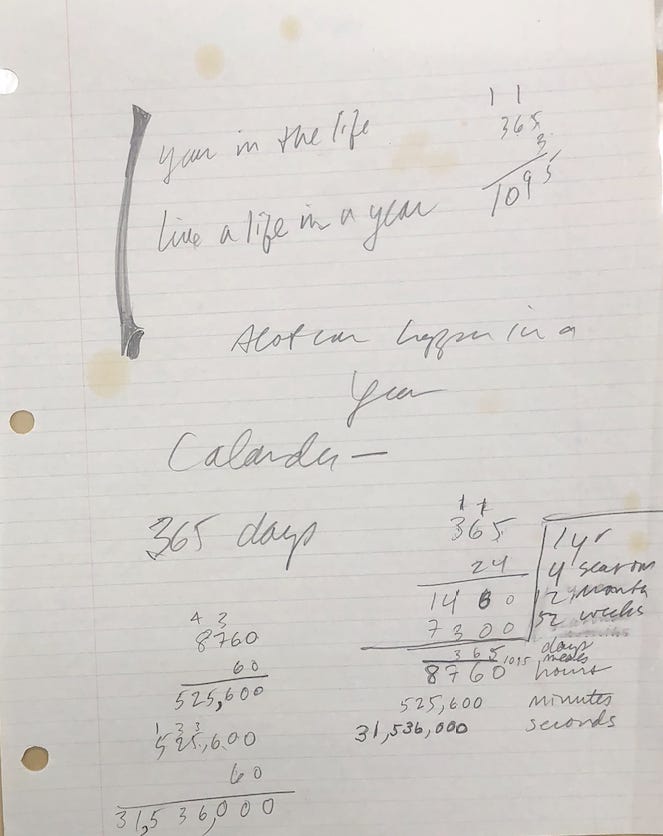 year in the life
1 1
365
3
1095
live a life in a year
Alot can happen in a
Year
Calander—
365 days
1 1
365
24
1460
7300
8760
1 yr
4 seasons
12 months
52 weeks
365 days
1095 meals
hours
525,600 minutes
31,536,000 seconds
4 3
8760
60
525,600
1 3 3
525,600
60
31,536,000